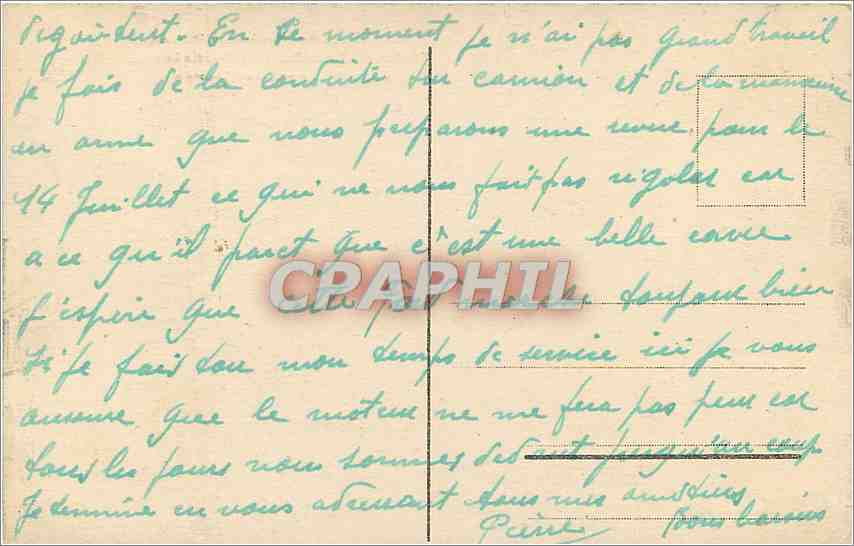 En se moment je n'ai pas grand travail
je fais de la conduite sur camion et de la manœuvre
en arme que nous preparons une revue pour le
14 Juillet ce qui ne nous fait pas rigoler car
a ce qu'il parct que c'est une belle corve
J'espère que toujour bien
si je fais tou mon temps de service ici je vous
assure que le moteur ne me fera pas peur car
tous les jours nous sommes
Je termine en vous adressant tous mes amitiés
Pierre Bons baisers
CPAPHIL